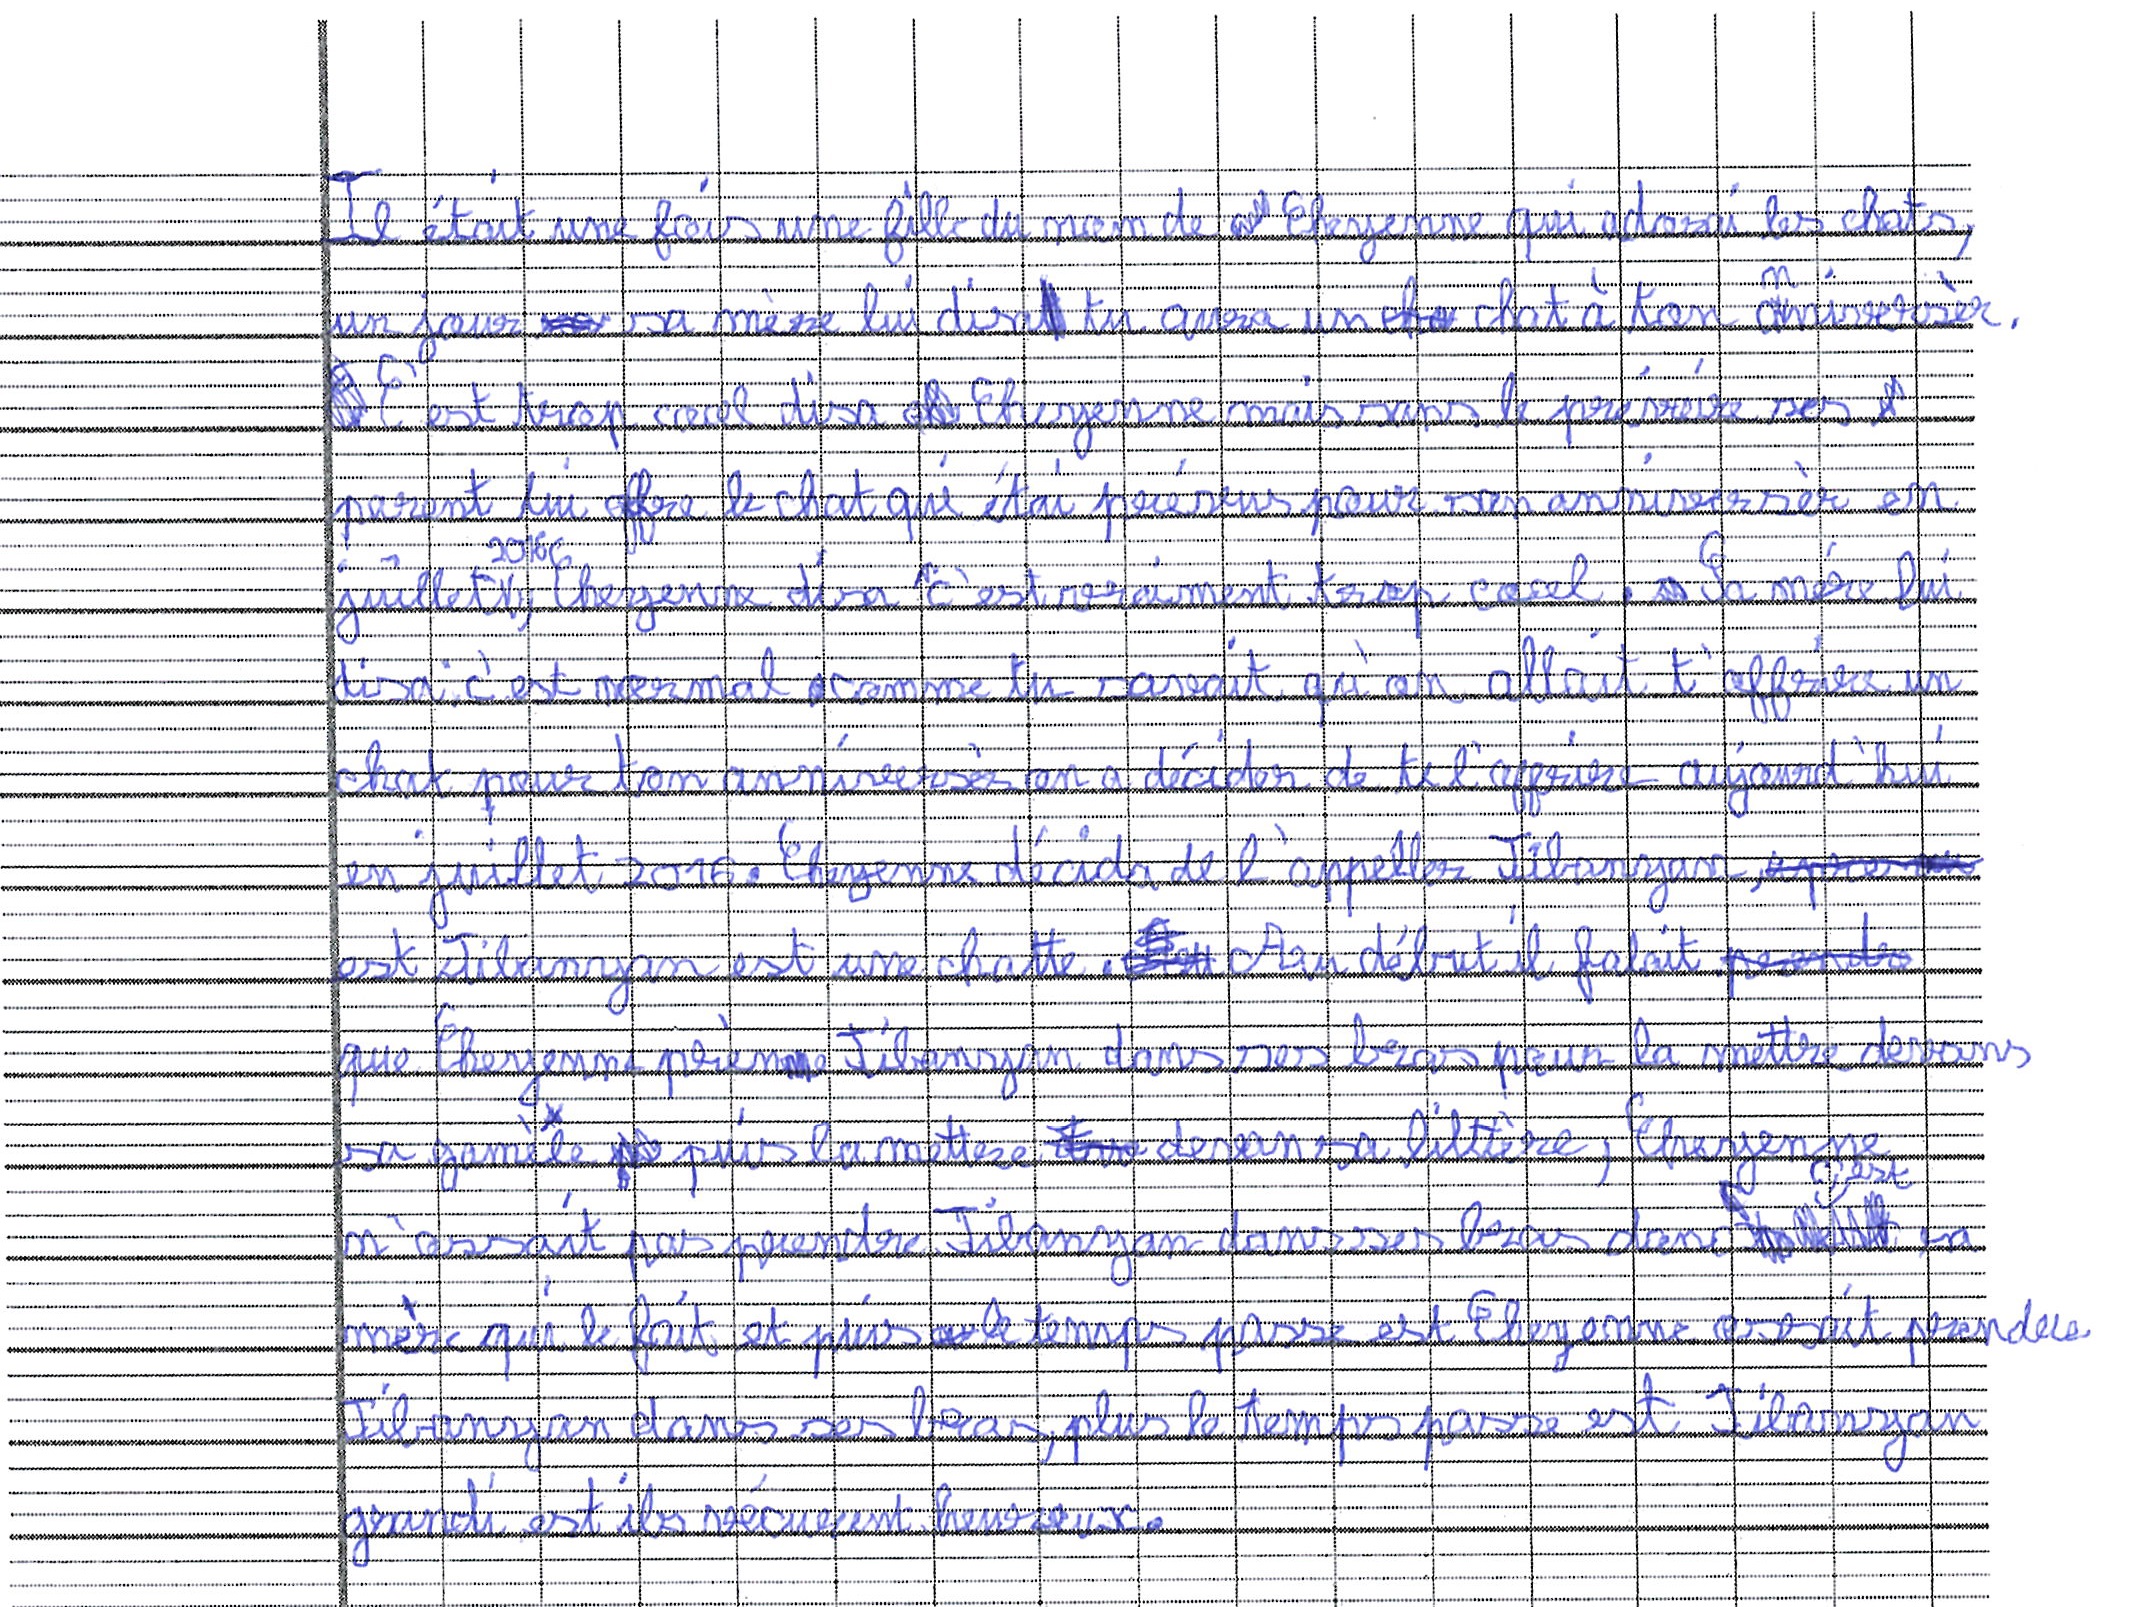 Il était une fois une fille du nom de Cheyenne qui adorai les chats,
un jour sa mère lui disa tu aura un chat à ton anniversèr.
C'est trop cool disa Cheyenne mais sans le prévéire ses
parent lui offre le chat qui étai prévus pour son anniversèr en
juillet 2016, Cheyenne disa c'est vraiment trop cool. Sa mére lui
disa c'est normal comme tu savait qu'on allait t'offrire un
chat pour ton anniversèr on a décider de te l'offrire aujourd'hui
en juillet 2016. Cheyenne décida de l'appeller Jibanyan,
est Jibanyan est une chatte. Au début il falait
que Cheyenne prènne Jibanyan dans ses bras pour la mettre devans
sa gamèle puis la mettre devan sa littière, Cheyenne
n'ossait pas prendre Jibanyan dans ses bras donc c'est sa
mèr qui le fait et puis le temps passe est Cheyenne ossait prendre
Jibanyan dans ses bras, plus le temps passe est Jibanyan
grandi est ils vécurent heureux.